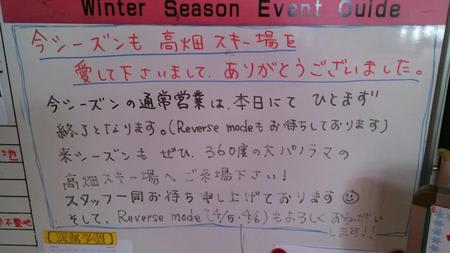 Winter Season Event Guide
今シーズンも 高畑スキー場を
愛して下さいまして、ありがとうございました。
今シーズンの通常営業は、本日にて ひとまず
終了となります。(Reverse modeもお待ちしております)
来シーズンもぜひ、360度の大パノラマの
高畑スキー場へご来場下さい!
スタッフ一同お待ち申し上げております
そして、Reverse mode(4/5・4/6)もよろしくおねがい
します!!